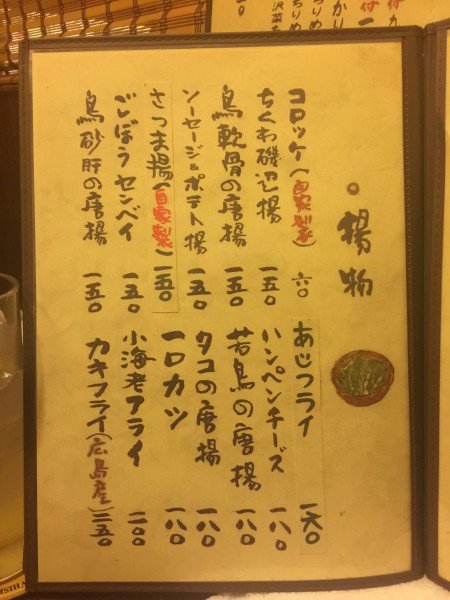 揚物
コロッケ(自家製) 六〇
ちくわ磯辺揚 一五〇
鳥軟骨の唐揚 一五〇
ソーセージ&ポテト揚 一五〇
さつま揚(自家製) 一五〇
ごぼうセンベイ 一五〇
鳥砂肝の唐揚 一五〇
あじフライ 一六〇
ハンペンチーズ 一八〇
若鳥の唐揚 一八〇
タコの唐揚 一八〇
一口カツ 一八〇
小海老フライ 二〇〇
カキフライ(広島産) 二五〇